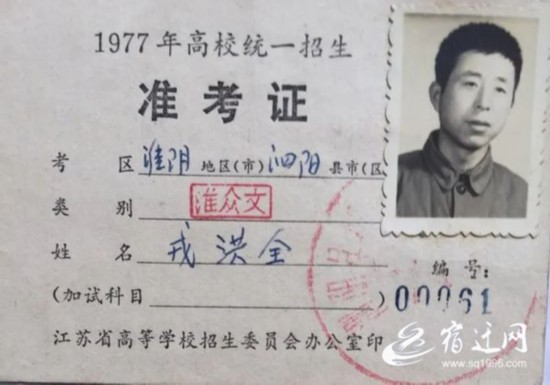 1977年高校统一招生
准考证
考区 淮阴 地区(市) 泗阳 县市(区
类别 淮众文
姓名 戎洪全
编号:
(加试科目 ) 00061
江苏省高等学校招生委员会办公室印
宿迁网
www.sq1996.com